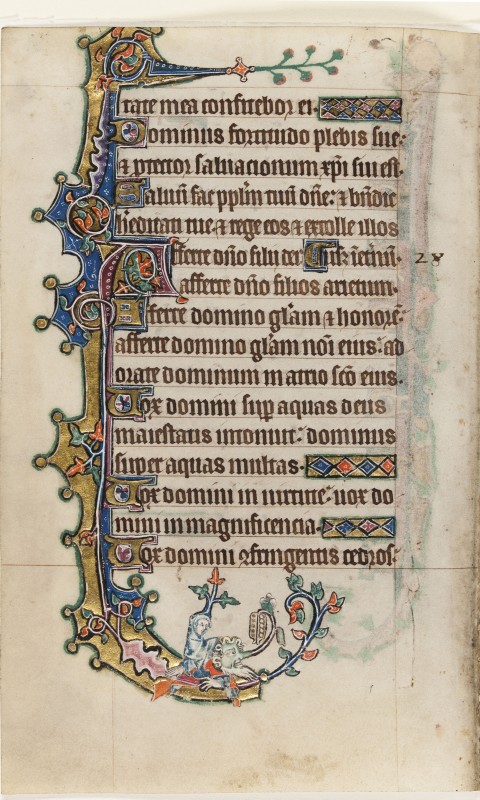 tate mea confitebor ei.
Dominus fortitudo plebis sue:
& ꝓtector saluacionum xp̄i sui est.
Saluū fac pp̄lm tuū dn̄e: & bn̄dic
hēditati tue & rege eos & extolle illos
Afferte dn̄o filii dei
afferte dn̄o filios arietum.
Afferte domino gl̄am & honorē:
afferte domino gl̄am noī eius: ad
orate dominum in atrio sc̄o eius.
Vox domini suꝑ aquas deus
maiestatis intonuit: dominus
super aquas multas.
Vox domini in uirtute: uox do
mini in magnificencia.
Vox domini ↄfringentis cedros:
28